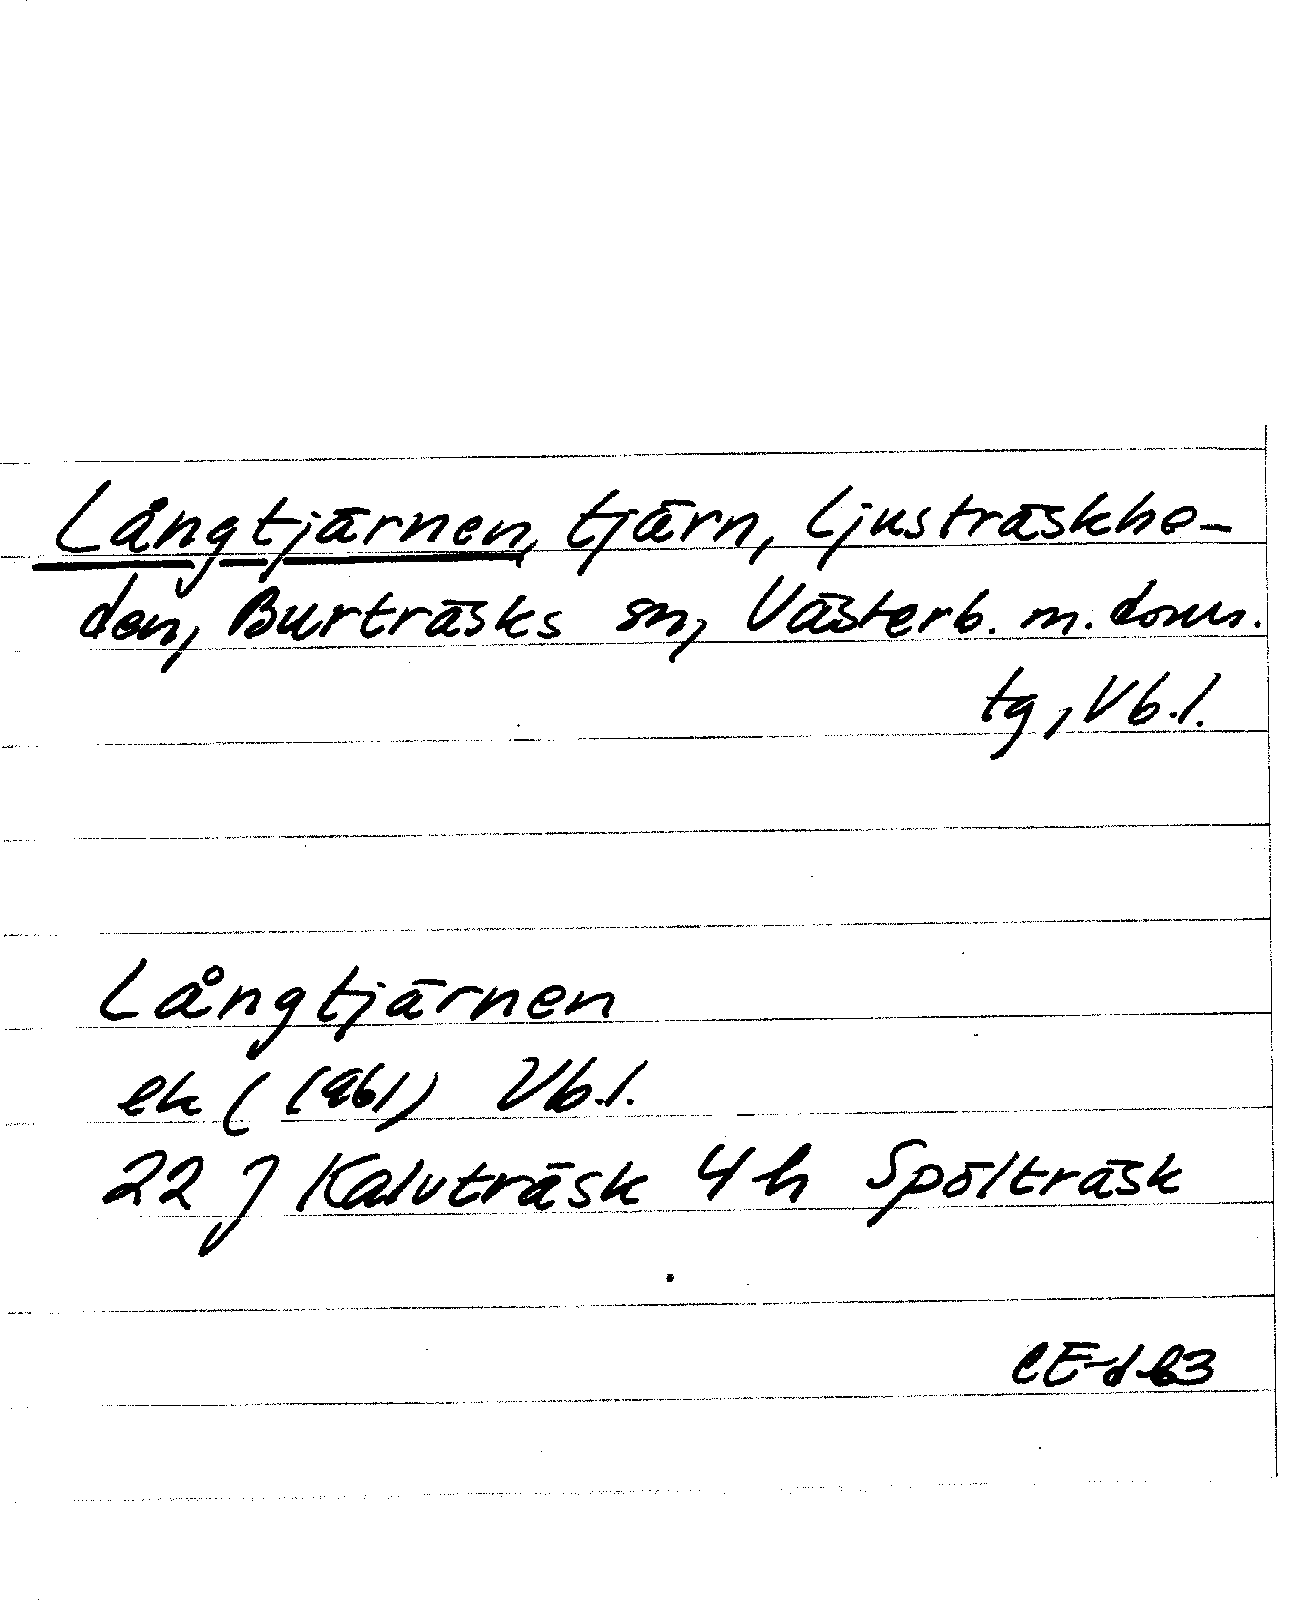 Långtjärnen, tjärn, Ljusträskhe-
den, Burträsks sn, Västerb. m. doms.
tg, Vb.l.
Långtjärnen
ek (1961) Vb.l.
22 J Kalvträsk 4 h Spölträsk
CE-d 63